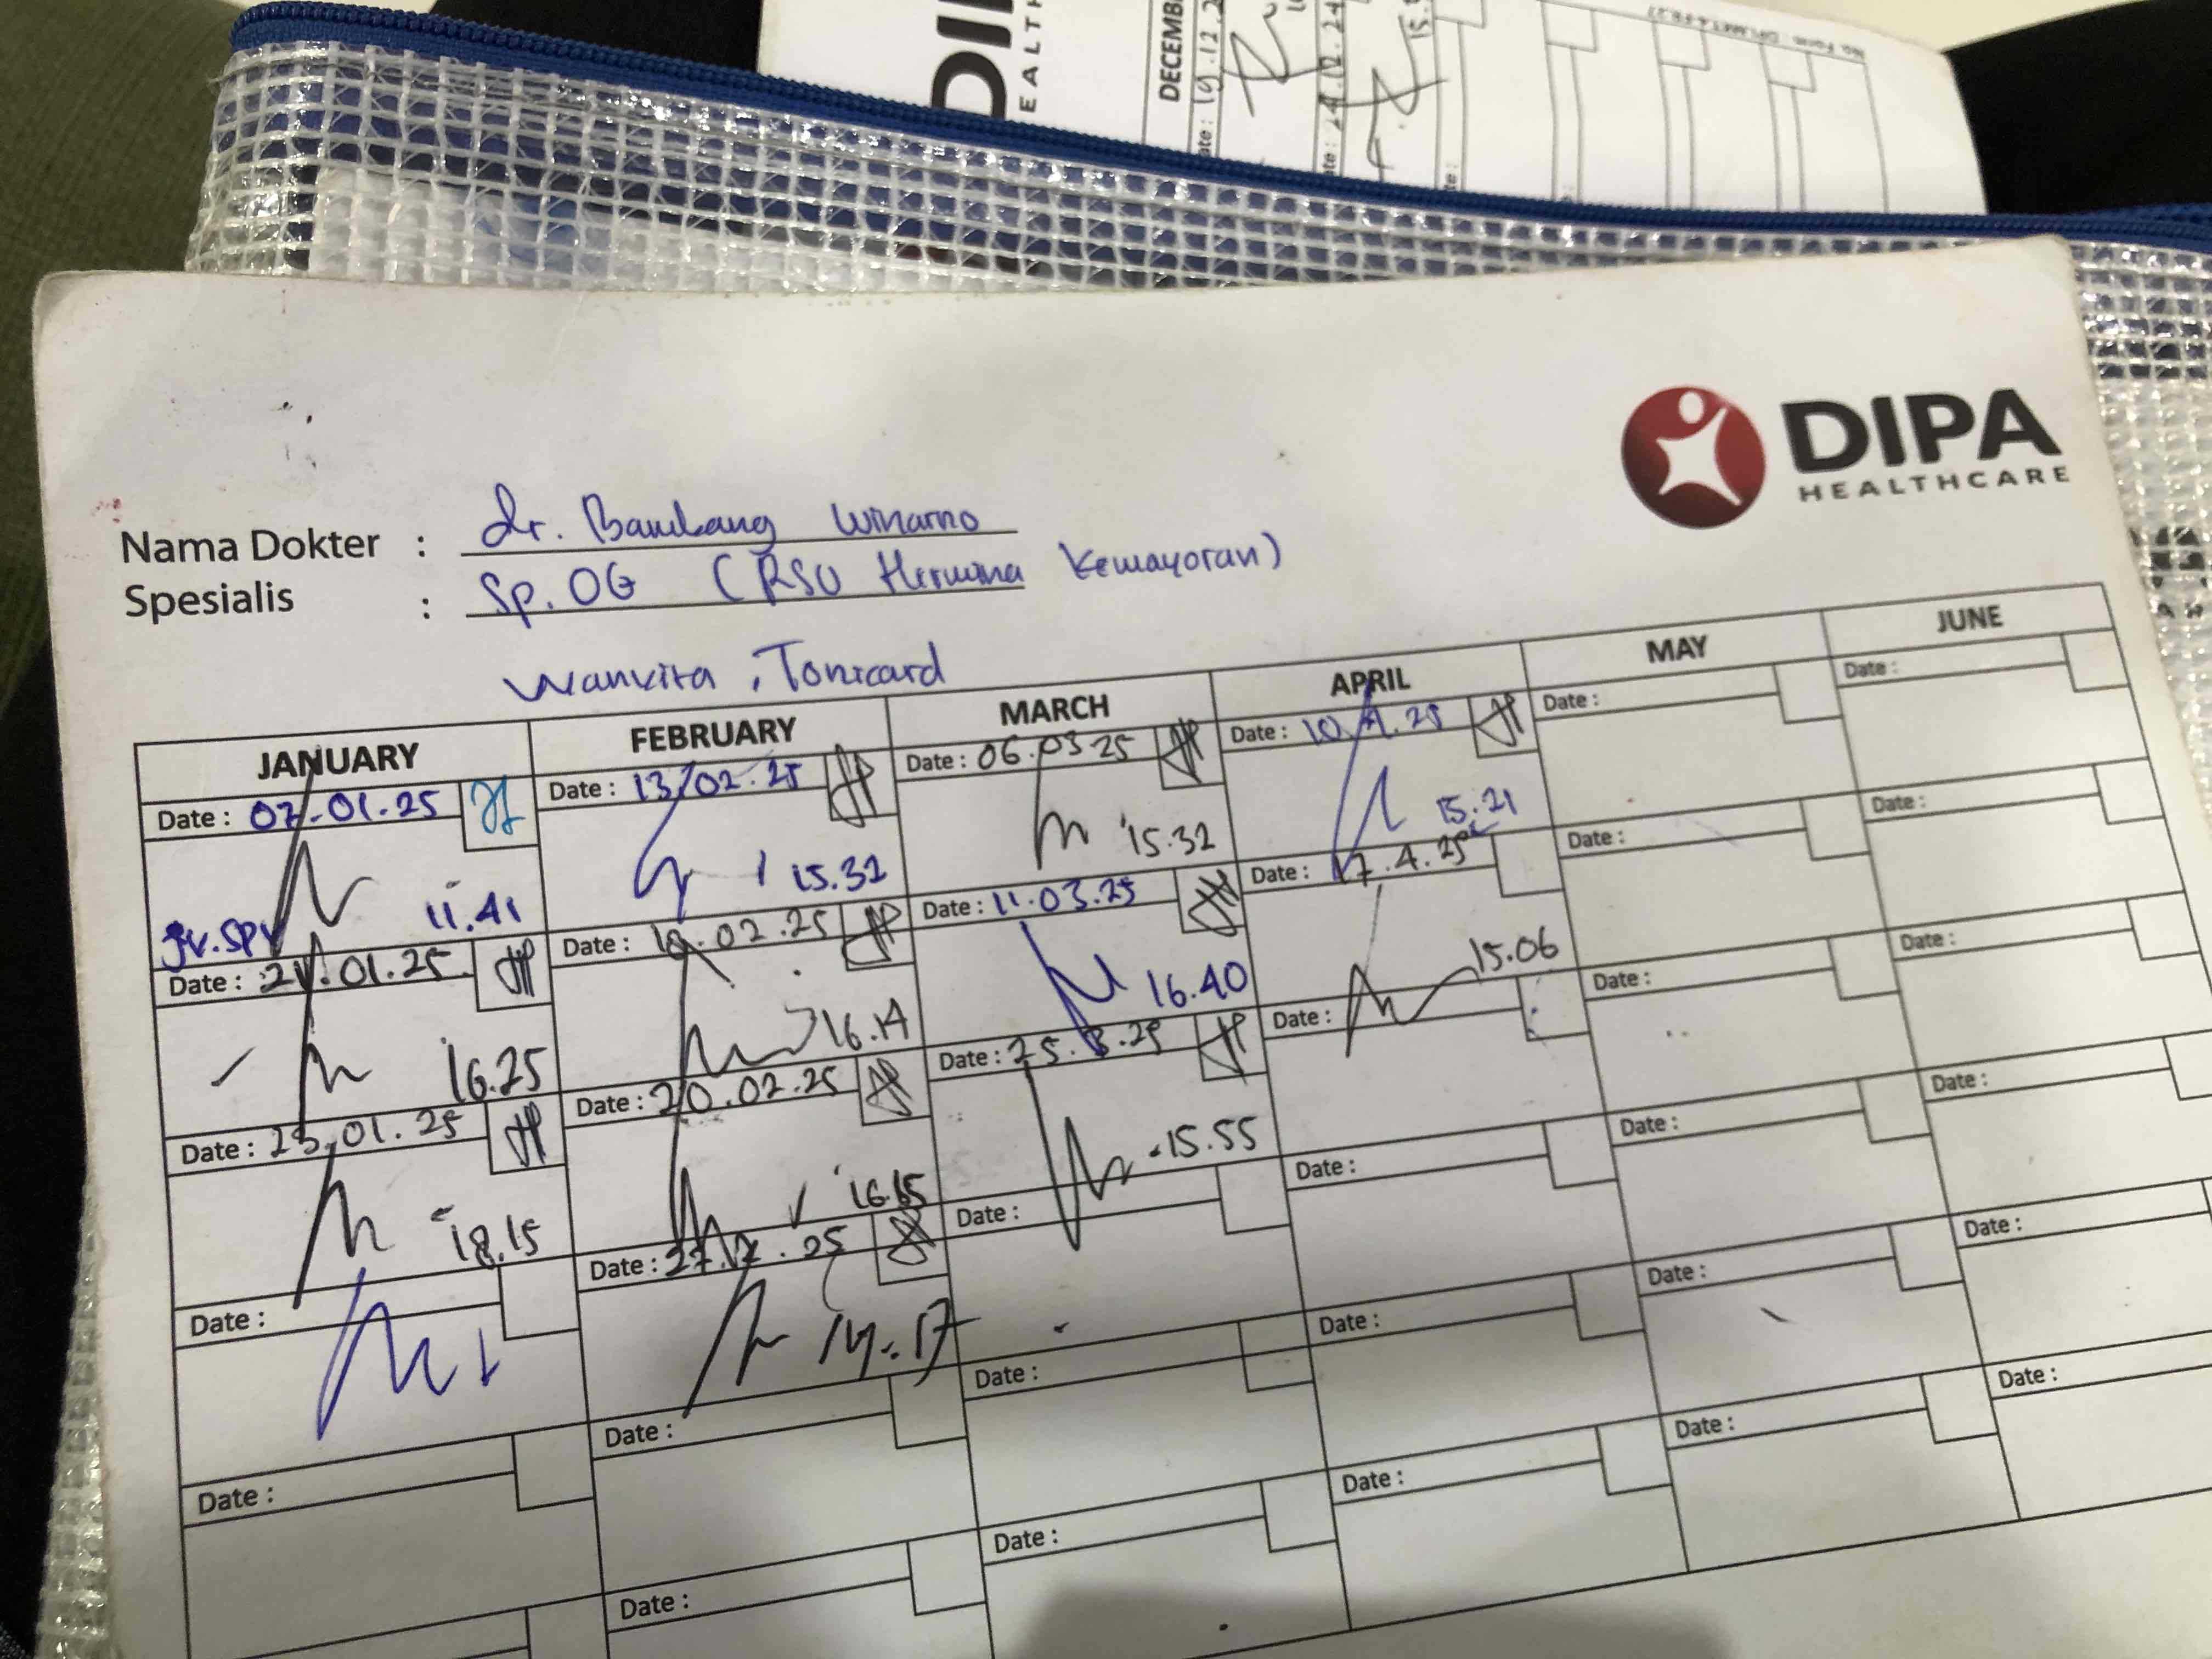 DECEMB
EALTH
DIPA
HEALTHCARE
Nama Dokter : dr. Bambang Winarno
Spesialis : Sp.OG (RSU Hermina Kemayoran)
Wanvita, Tonicard
JANUARY FEBRUARY MARCH APRIL MAY JUNE
Date : 07-01.25 Date : 13/02.25 Date : 06.03.25 Date : 10.4.25 Date : Date :
JV.SPV 11.41 15.32 15.32 15.21
Date : 21.01.25 Date : 02.25 Date : 11.03.25 Date : 17.4.25 Date : Date :
16.25 16.14 16.40 15.06
Date : 23.01.25 Date : 20.02.25 Date : 25.3.25 Date : Date : Date :
18.15 16.15 15.55
Date : Date : 27.2.25 Date : Date : Date : Date :
17
Date : Date : Date : Date : Date : Date :
Date : Date : Date : Date : Date :